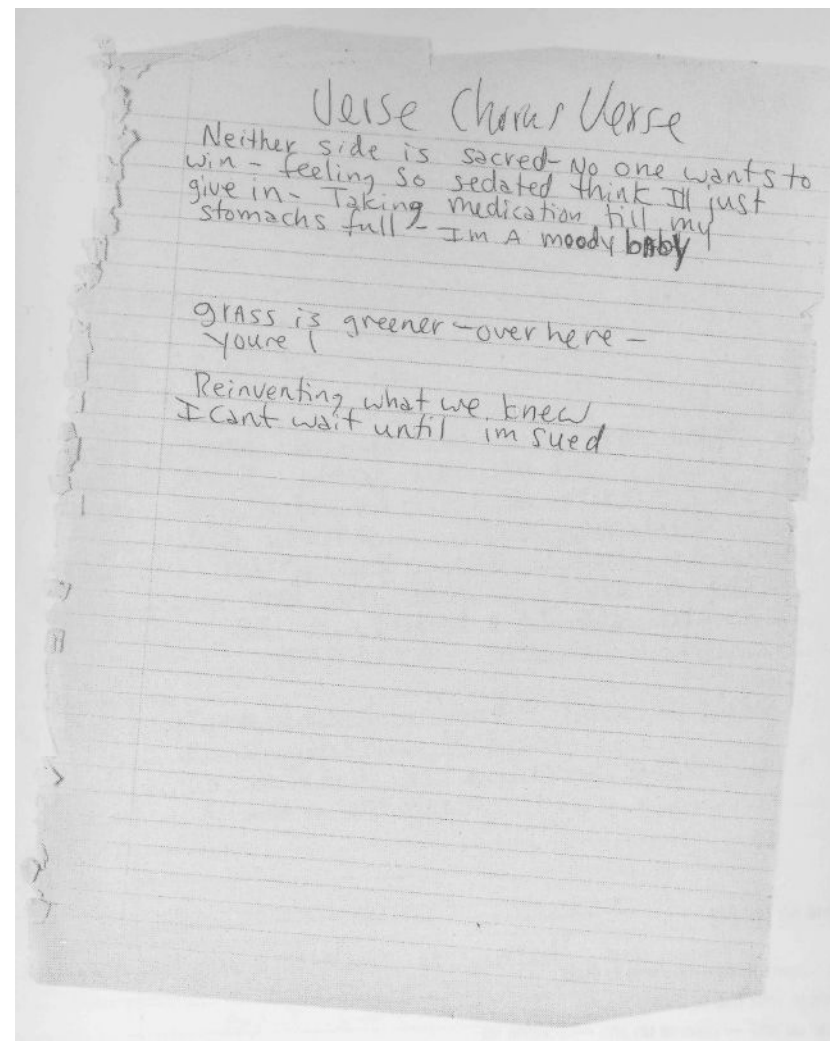 Verse Chorus Verse
Neither side is sacred - No one wants to
win - feeling so sedated think Ill just
give in - Taking medication till my
stomachs full - Im A moody baby
grass is greener - over here -
youre
Reinventing what we knew
I cant wait until im sued